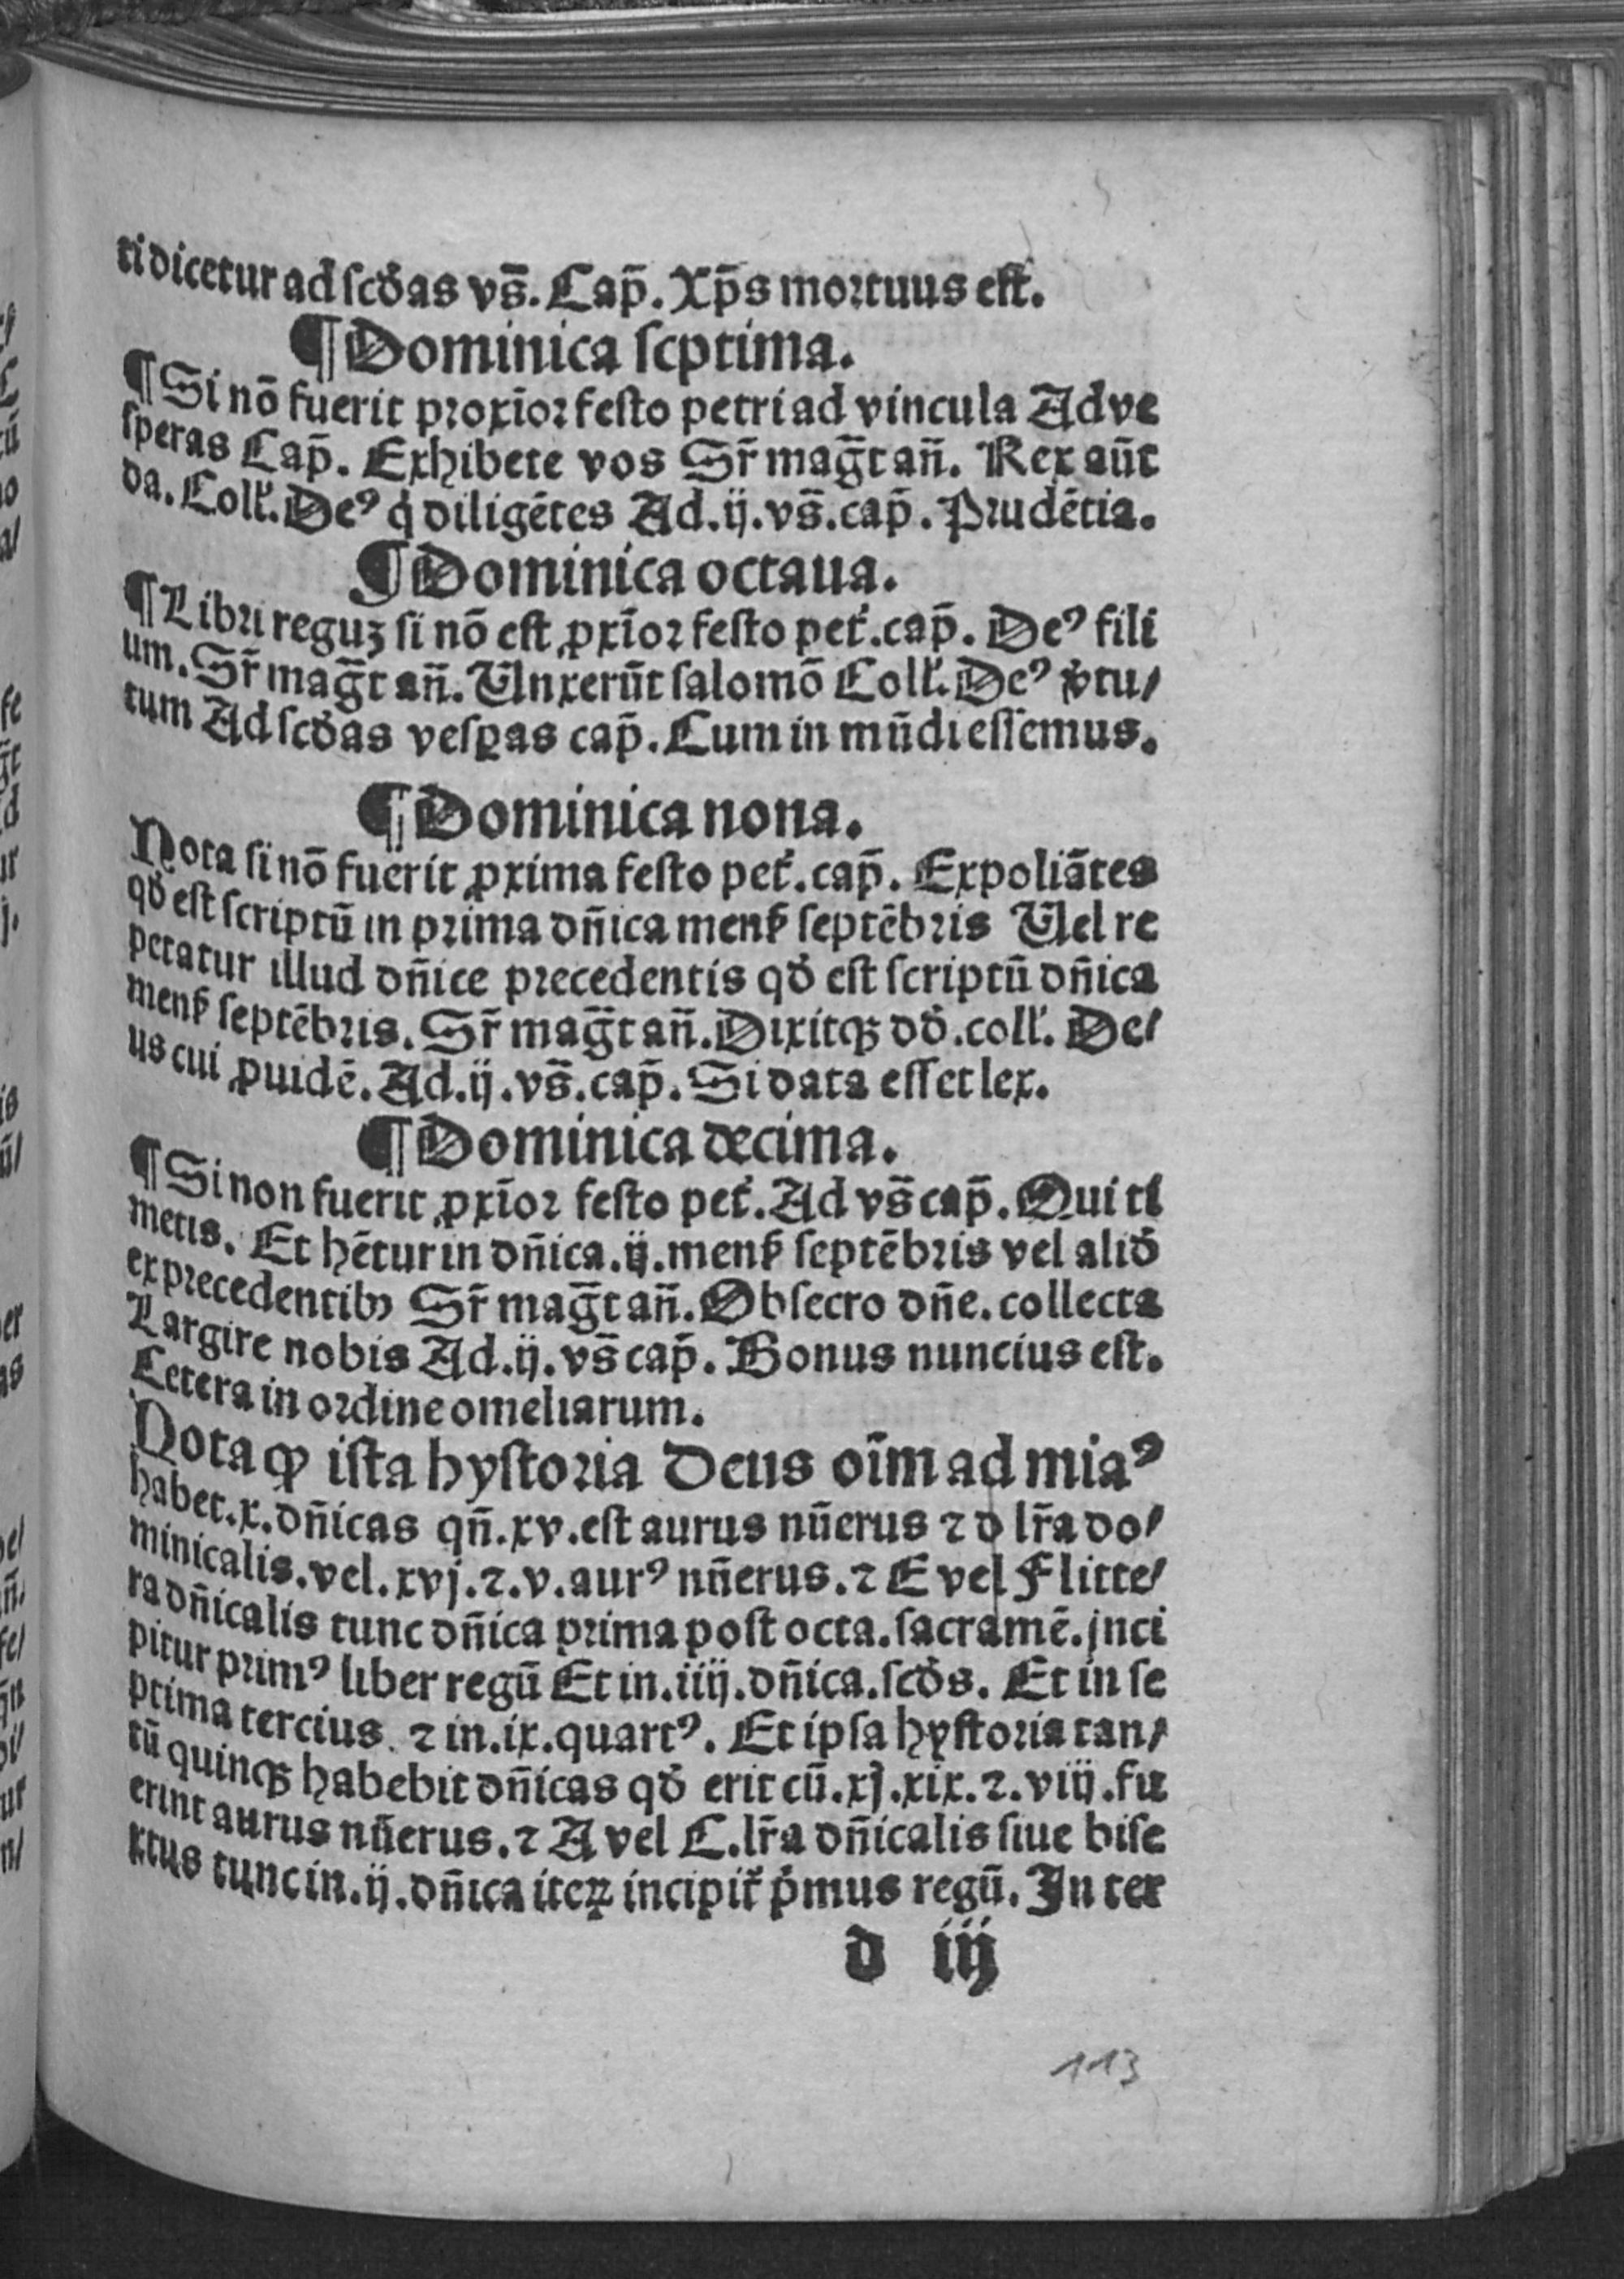 ti dicetur ad scd̓as vs̄. Cap̄. Xp̄s mortuus est.
¶ Dominica septima.
¶ Si nō fuerit proxīor festo petri ad vincula Ad ve
speras Cap̄. Exhibete vos Sr̄ mag̅t an̄. Rex aūt
da. Coll̓. Deꝰ q̓ diligētes Ad .ij. vs̄. cap̄. Prudētia.
¶ Dominica octaua.
¶ Libri reguꝫ si nō est ꝓxīor festo pet̓. cap̄. Deꝰ fili
um. Sr̄ mag̅t an̄. Unxerūt salomō Coll̓. Deꝰ v̓tu/
tum Ad scd̓as vesꝑas cap̄. Cum in mūdi essemus.
¶ Dominica nona.
Nota si nō fuerit ꝓxima festo pet̓. cap̄. Expoliātes
qd̓ est scriptū in prima dn̄ica menẜ septēbris Uel re
petatur illud dn̄ice precedentis qd̓ est scriptū dn̄ica
menẜ septēbris. Sr̄ mag̅t an̄. Dixitqꝫ dd̓. coll̓. De/
us cui ꝓuidē. Ad .ij. vs̄. cap̄. Si data esset lex.
¶ Dominica decima.
¶ Si non fuerit ꝓxīor festo pet̓. Ad vs̄ cap̄. Qui ti
metis. Et hētur in dn̄ica .ij. menẜ septēbris vel alid̓
ex precedentibꝫ Sr̄ mag̅t an̄. Obsecro dn̄e. collecta
Largire nobis Ad .ij. vs̄ cap̄. Bonus nuncius est.
Cetera in ordine omeliarum.
Nota ꝙ ista hystoria Deus oīm ad miaꝰ
habet .x. dn̄icas qn̄ .xv. est aurus nūerus ⁊ d lr̄a do/
minicalis. vel .xvj. ⁊ .v. aurꝰ nūerus. ⁊ E vel F litte/
ra dn̄icalis tunc dn̄ica prima post octa. sacramē. jnci
pitur primꝰ liber regū Et in .iiij. dn̄ica. scd̓s. Et in se
ptima tercius. ⁊ in .ix. quartꝰ. Et ipsa hystoria tan/
tū quinqꝫ habebit dn̄icas qd̓ erit cū .xj. xix. ⁊ .viij. fu
erint aurus nūerus. ⁊ A vel C. lr̄a dn̄icalis siue bise
xtus tunc in .ij. dn̄ica iteꝝ incipit̓ p̓mus regū. In ter
d iij
113